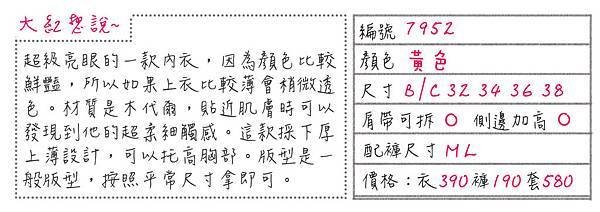 大紅想說~
超級亮眼的一款內衣，因為顏色比較
鮮豔，所以如果上衣比較薄會稍微透
色。材質是木代爾，貼近肌膚時可以
發現到他的超柔細觸感。這款採下厚
上薄設計，可以托高胸部。版型是一
般版型，按照平常尺寸拿即可。
編號 7952
顏色 黃色
尺寸 B/C 32 34 36 38
肩帶可拆 O 側邊加高 O
配褲尺寸 ML
價格：衣390褲190套580